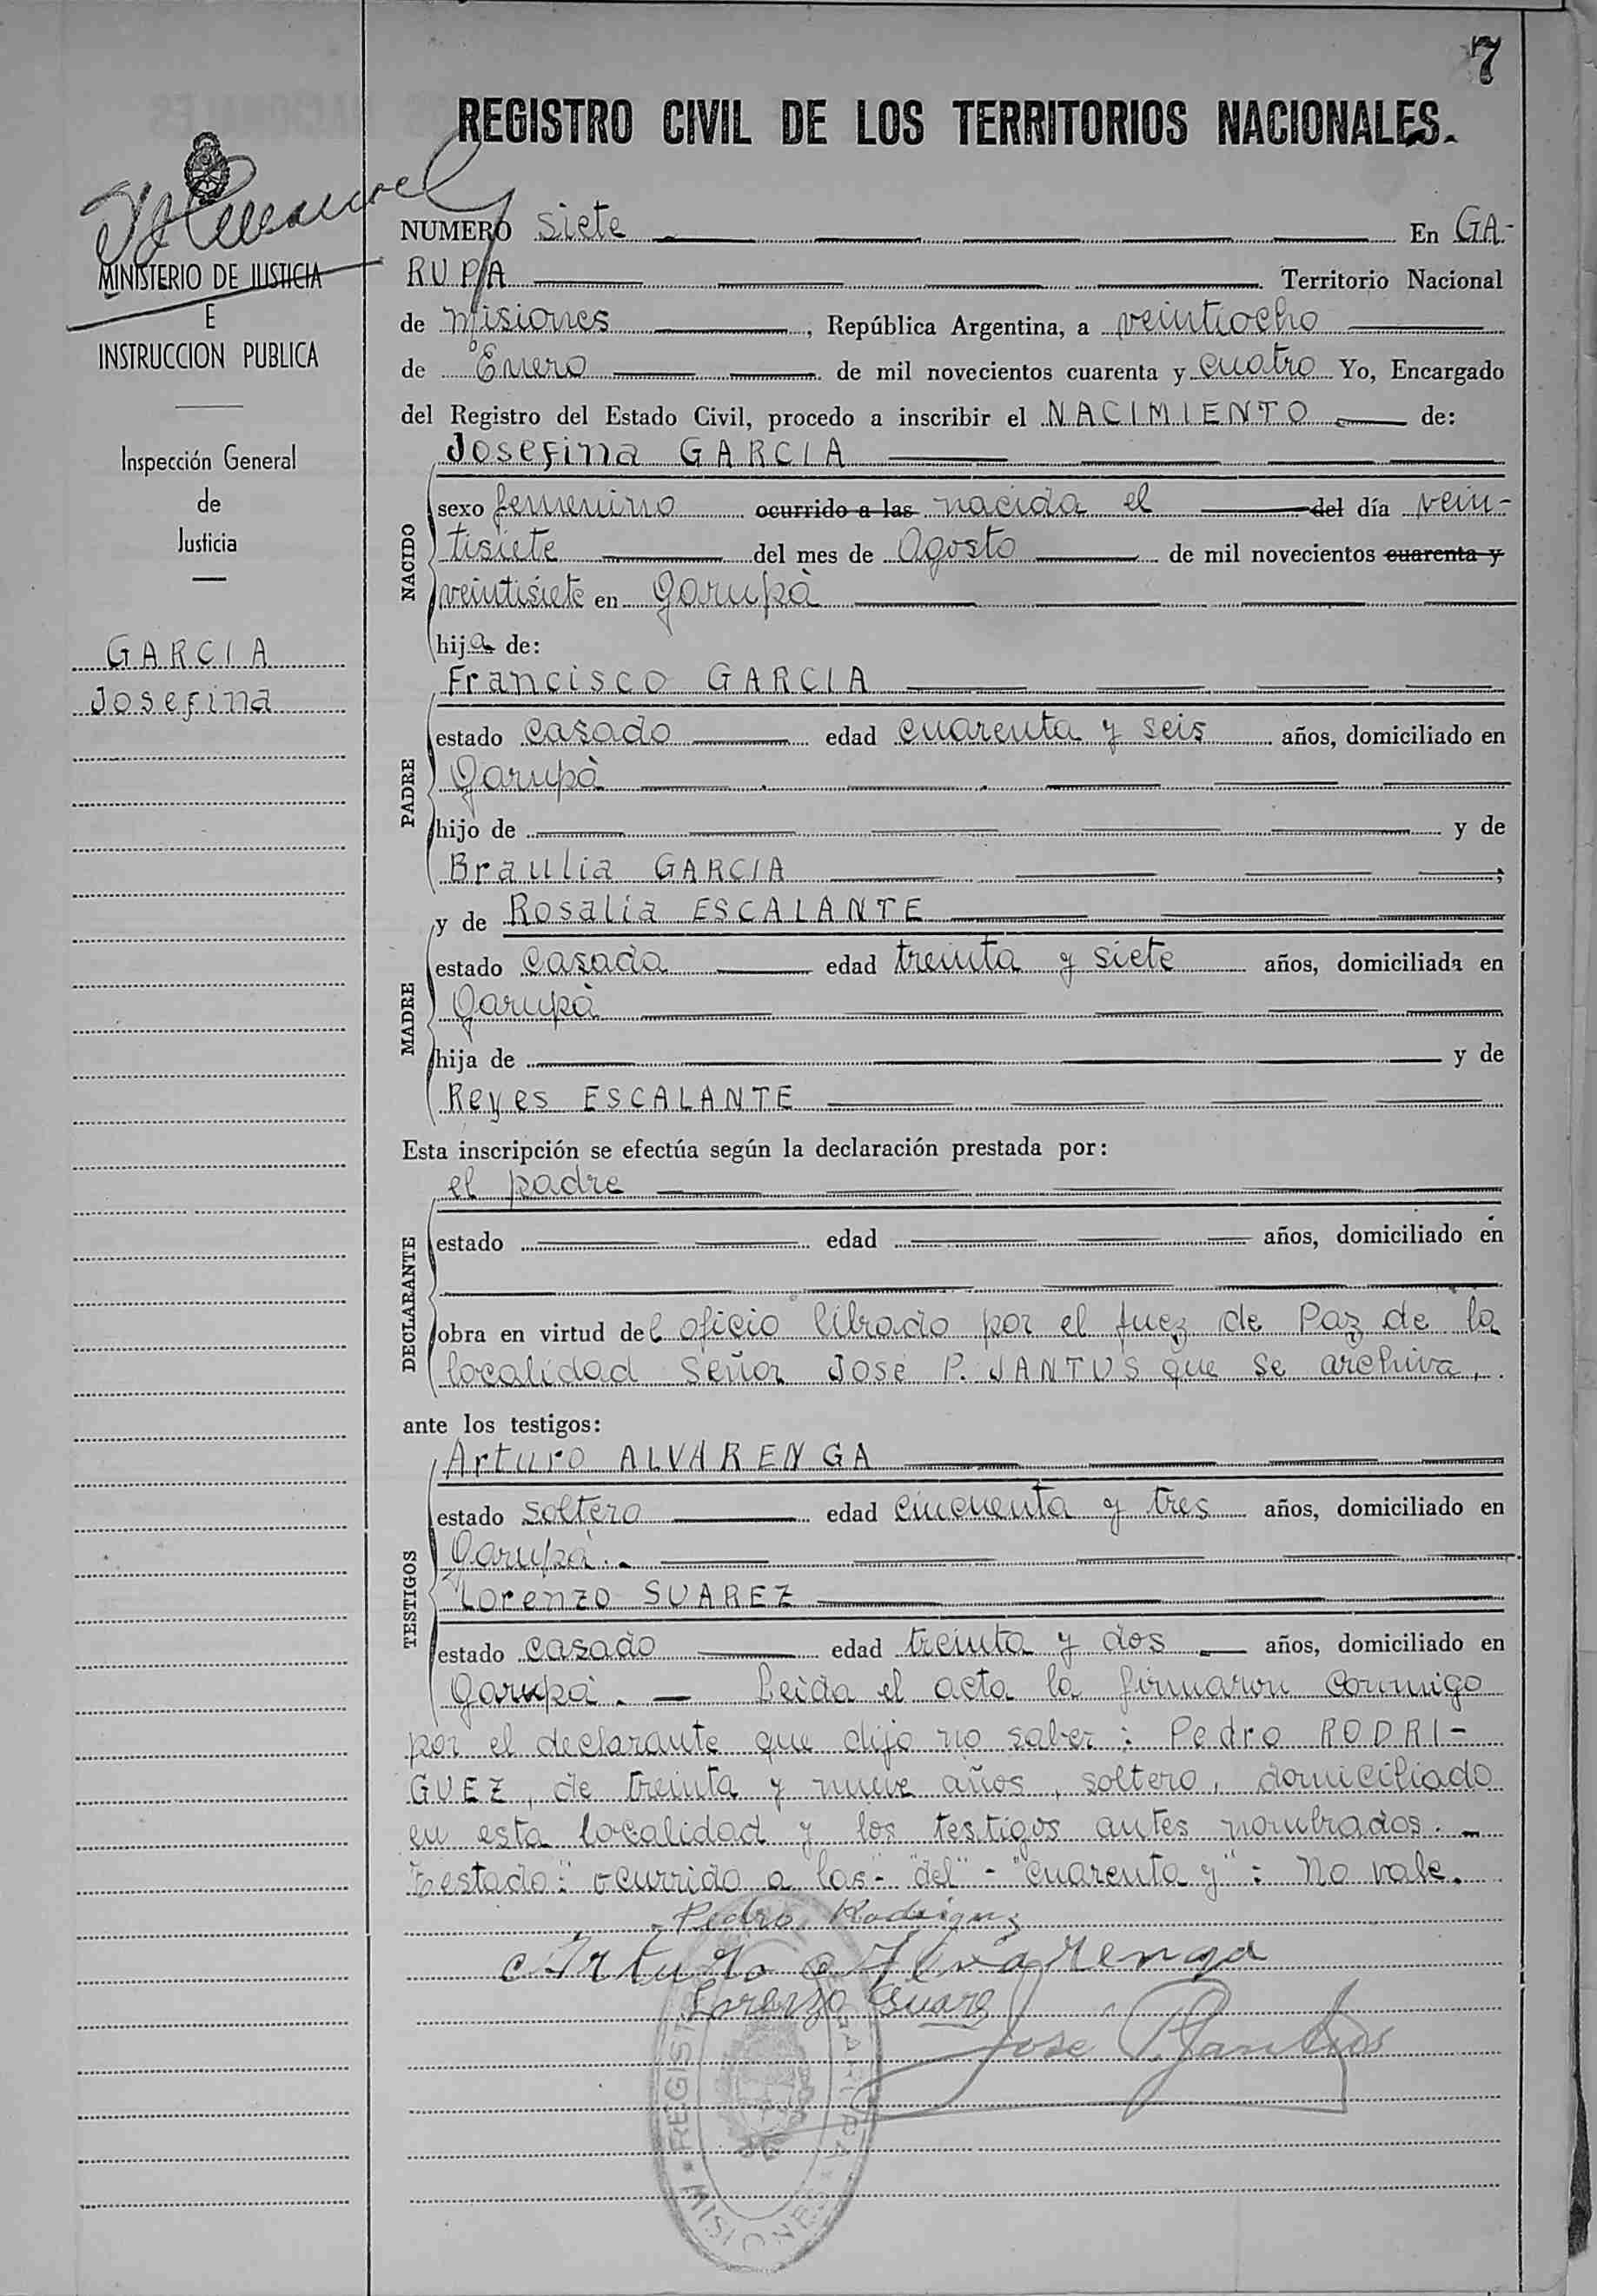 7
REGISTRO CIVIL DE LOS TERRITORIOS NACIONALES.
MINISTERIO DE JUSTICIA
E
INSTRUCCION PUBLICA
Inspección General
de
Justicia
GARCIA
Josefina
NUMERO siete En GA-
RUPA Territorio Nacional
de Misiones, República Argentina, a veintiocho
de Enero de mil novecientos cuarenta y cuatro Yo, Encargado
del Registro del Estado Civil, procedo a inscribir el NACIMIENTO de:
Josefina GARCIA
NACIDO
sexo femenino ocurrido a las nacida el del día vein-
tisiete del mes de Agosto de mil novecientos cuarenta y
veintisiete en Garupà
hija de:
Francisco GARCIA
PADRE
estado casado edad cuarenta y seis años, domiciliado en
Garupà
hijo de y de
Braulia GARCIA ;
y de Rosalia ESCALANTE
MADRE
estado casada edad treinta y siete años, domiciliada en
Garupà
hija de y de
Reyes ESCALANTE
Esta inscripción se efectúa según la declaración prestada por:
el padre
DECLARANTE
estado edad años, domiciliado en
obra en virtud del oficio librado por el Juez de Paz de la
localidad Señor José P. JANTUS que se archiva,
ante los testigos:
Arturo ALVARENGA
TESTIGOS
estado soltero edad cincuenta y tres años, domiciliado en
Garupà.
Lorenzo SUAREZ
estado casado edad treinta y dos años, domiciliado en
Garupà. — Leida el acta la firmaron conmigo
por el declarante que dijo no saber: Pedro RODRI-
GUEZ, de treinta y nueve años, soltero, domiciliado
en esta localidad y los testigos antes nombrados. -
Testado: "ocurrido a las - "del" - "cuarenta y": No vale.
Pedro Rodriguez
Arturo Alvarenga
Lorenzo Suarez
José P. Jantus
REGIST
MISIONES